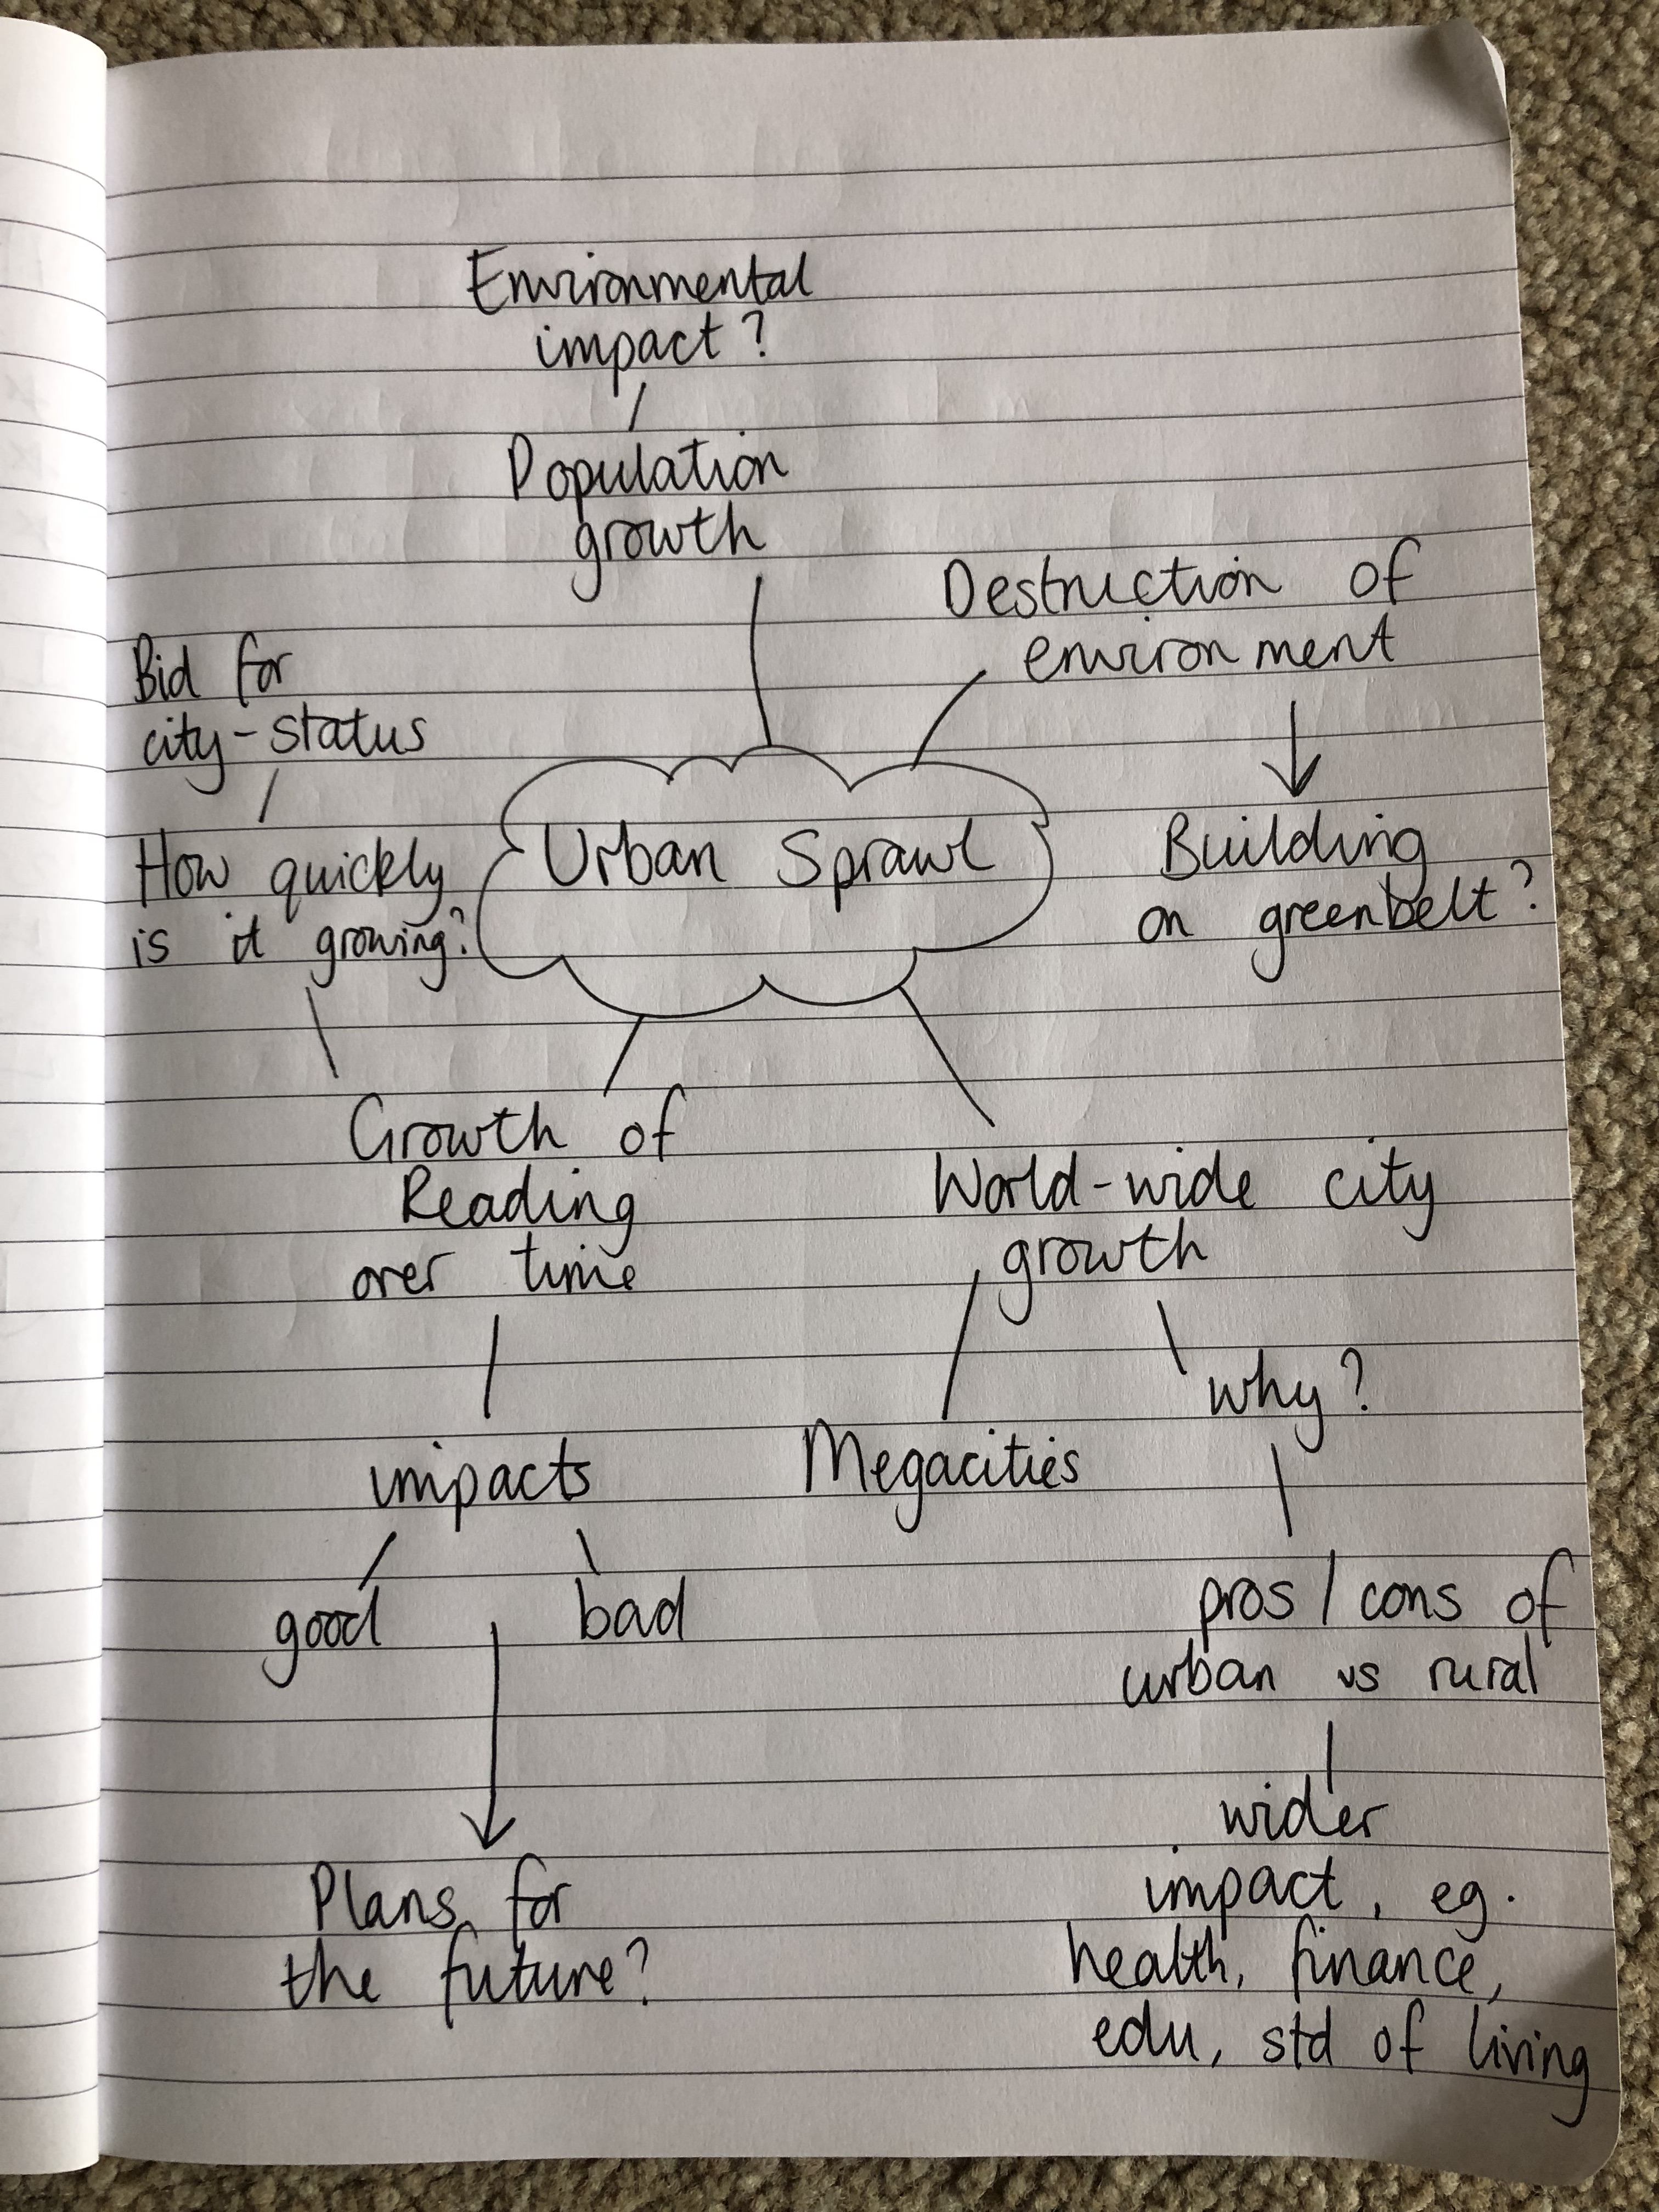 Environmental
impact?
Population
growth
Destruction of
environment
Bid for
city-status
How quickly
is it growing?
Urban Sprawl
Building
on greenbelt?
Growth of
Reading
over time
World-wide city
growth
why?
impacts
Megacities
good
bad
pros / cons of
urban vs rural
wider
impact, eg.
health, finance,
edu, std of living
Plans for
the future?